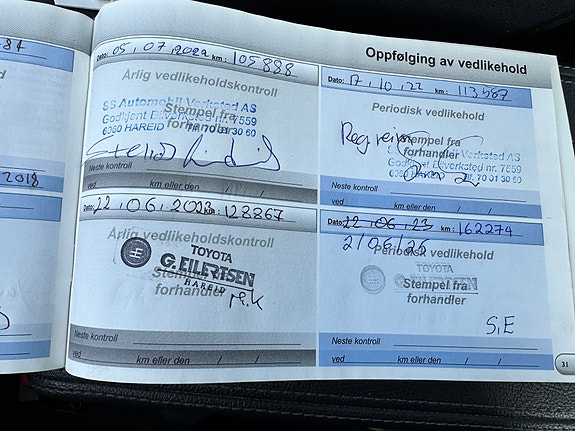 Oppfølging av vedlikehold
2018
Dato: 05, 07, 2022 km: 105 888
Årlig vedlikeholdskontroll
SS Automobil Verksted AS
Godkjent Bilverksted nr. 7559
6060 HAREID
70 31 30 60
Stempel fra
forhandler
Neste kontroll
ved km eller den / /
Dato: 17, 10, 22 km: 113587
Periodisk vedlikehold
Reg. reim
Stempel fra
Verksted AS
Godkjent Bilverksted nr. 7559
forhandler
Tlf. 70 31 30 60
Neste kontroll
ved km eller den / /
Dato: 22, 06, 2023 km: 128867
Årlig vedlikeholdskontroll
TOYOTA
G. EILERTSEN
HAREID
Stempel fra
forhandler
M.K
Neste kontroll
ved km eller den / /
Dato: 22, 06, 23 km: 162274
2/06/25
Periodisk vedlikehold
TOYOTA
G. EILERTSEN
Stempel fra
forhandler
S,E
Neste kontroll
ved km eller den / /
31